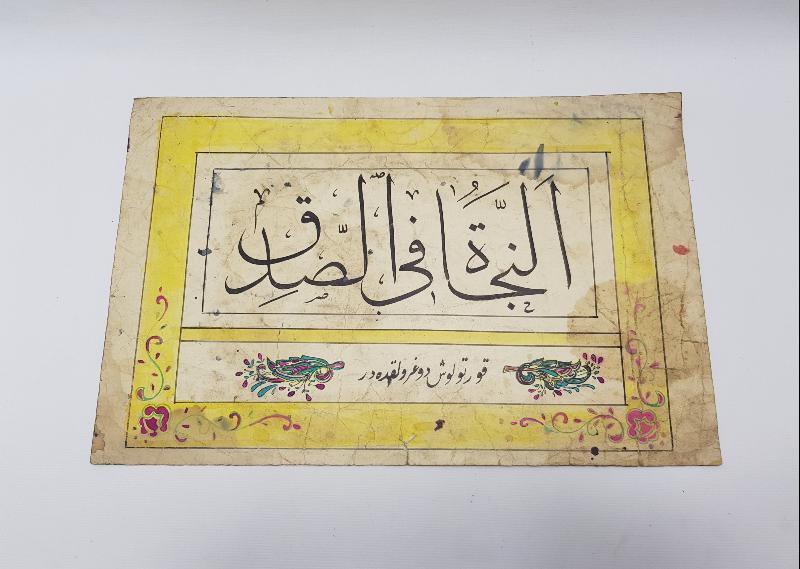 اَلنَّجَاةُ فِی الصِّدْقِ
قورتولوش دوغرولقده در